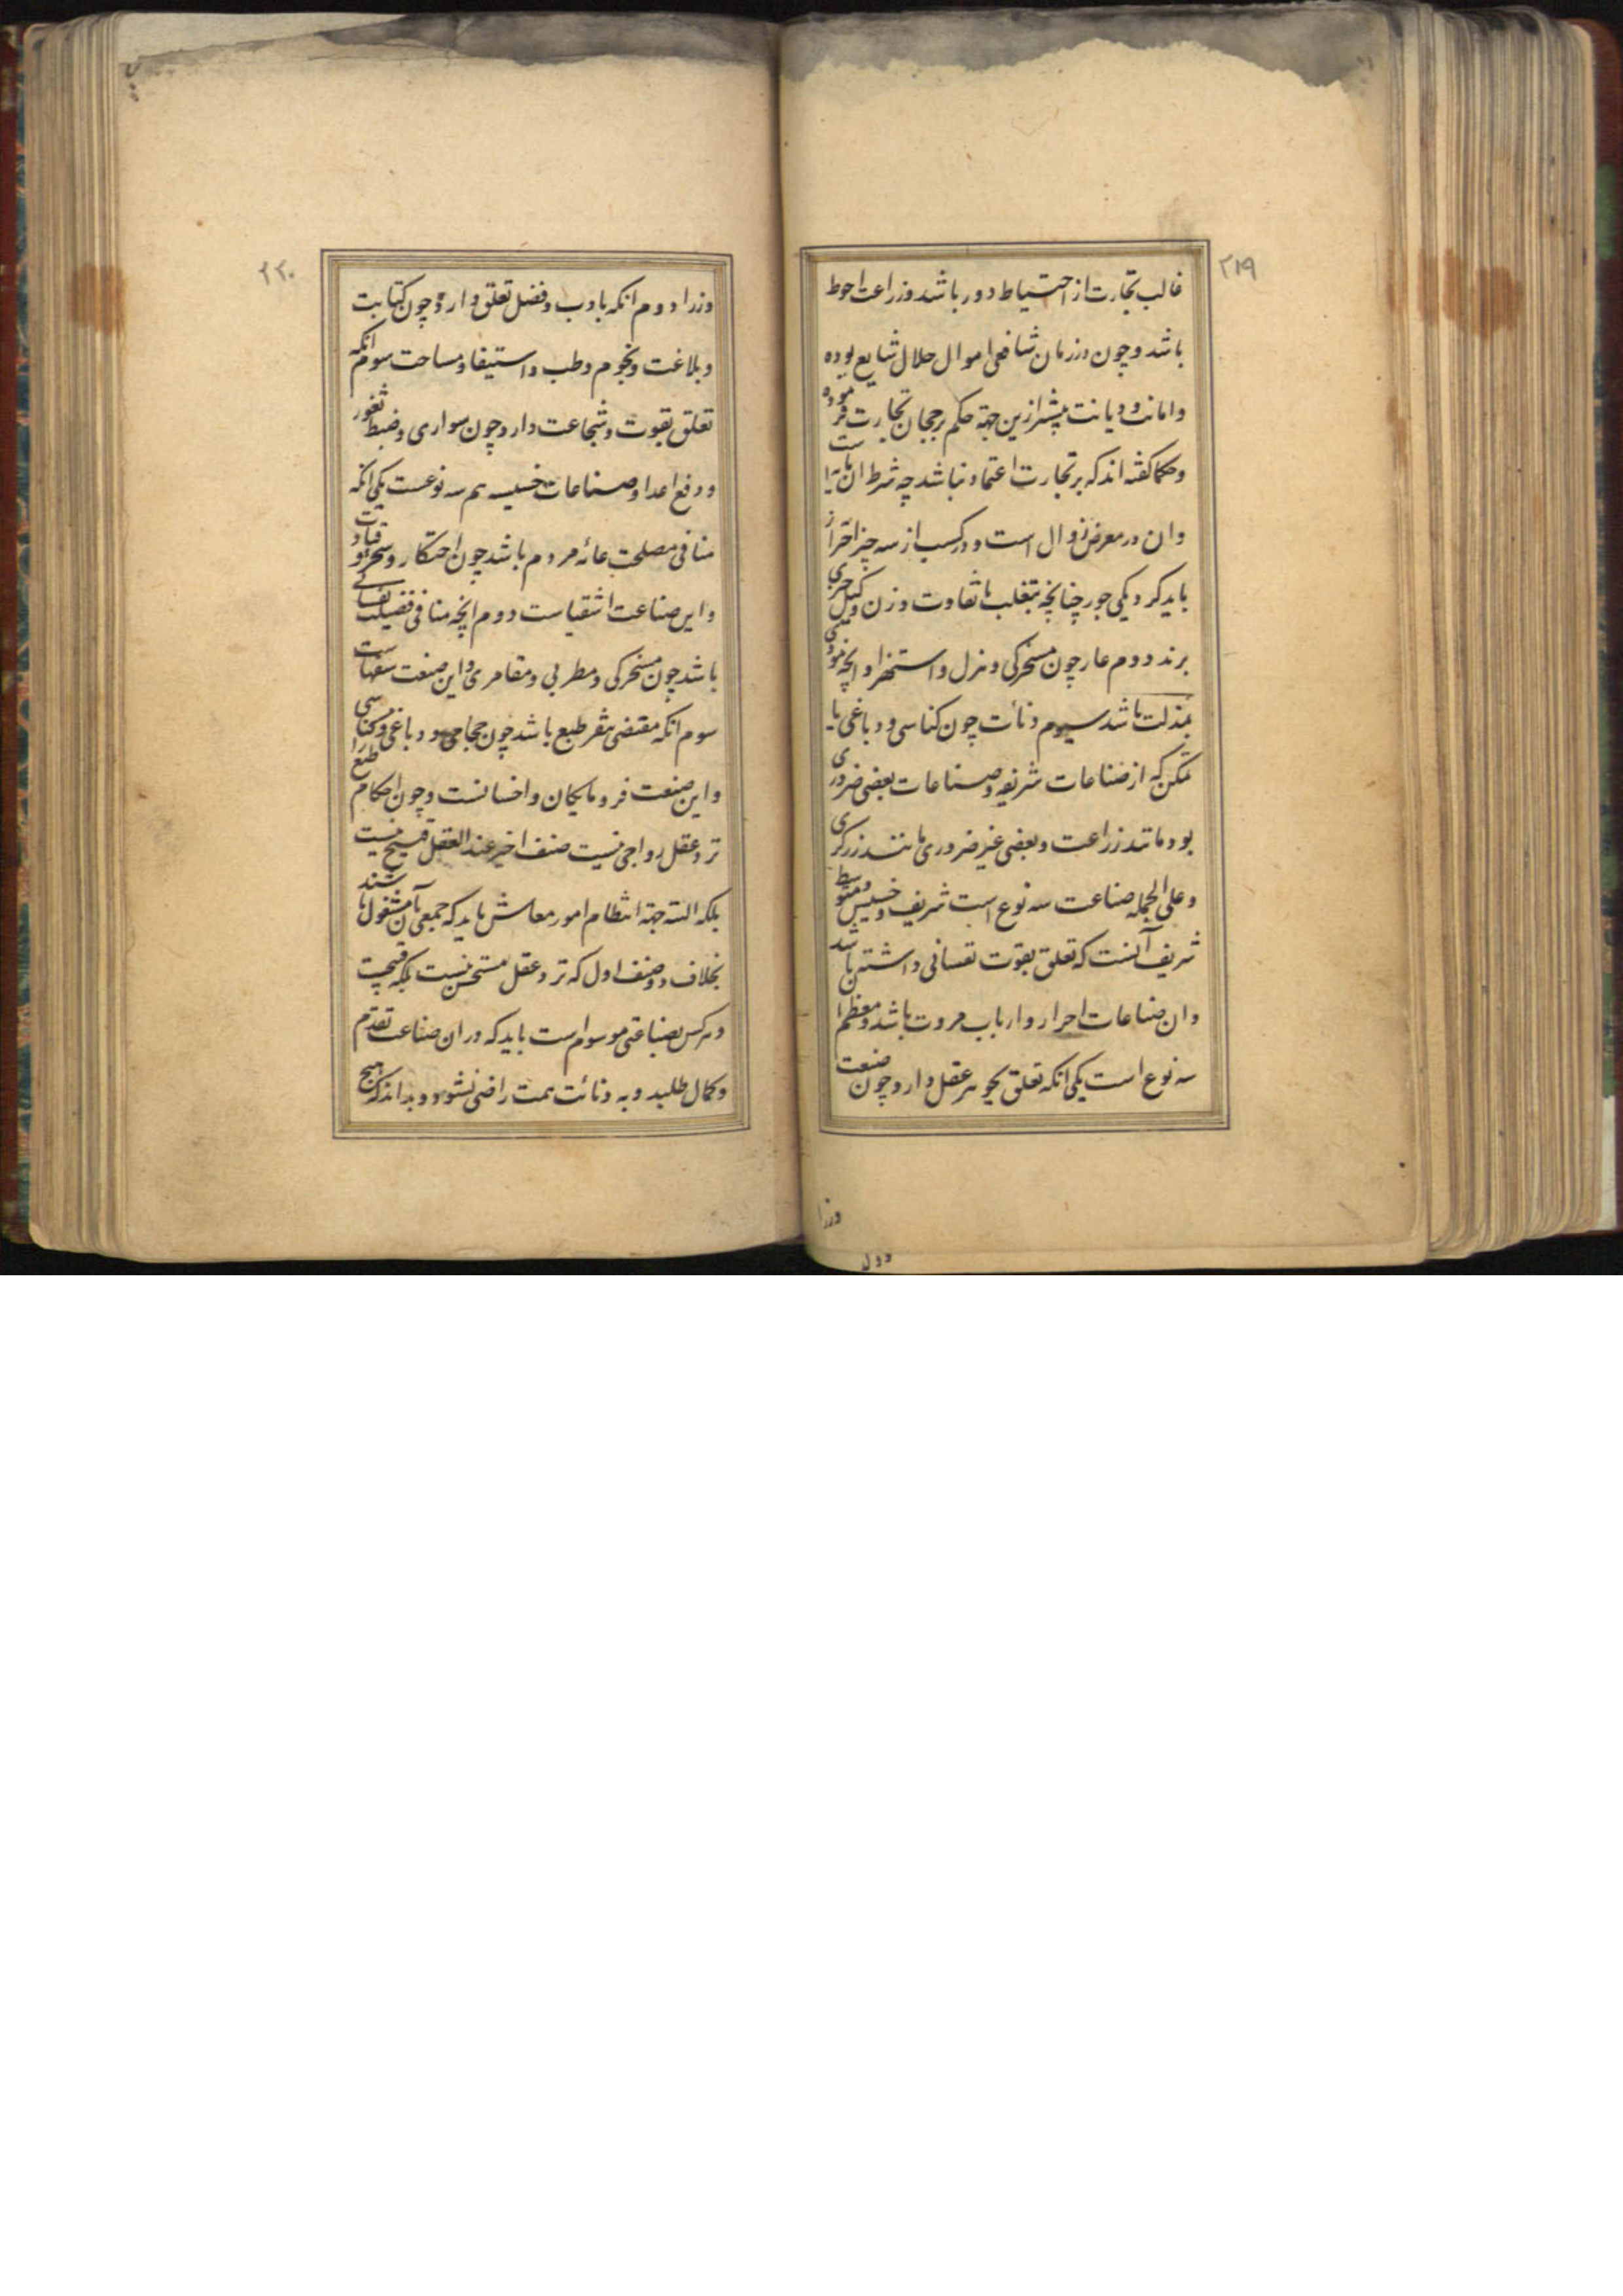 ۲۱۹
غالب تجارت از احتیاط دور باشد و زراعت احوط
باشد و چون در زمان شافعی اموال حلال شایع بوده
و امانت و دیانت بیشتر ازین جهة حکم برجحان تجارت فرموده
و حکما گفته اند که بر تجارت اعتماد نباشد چه شرط ان مایه است
و ان در معرض زوال است و در کسب از سه چیز احتراز
باید کرد یکی جور چنانچه بتغلب یا تفاوت وزن و کیل چیزی
برند دوم عار چون مسخرکی و هزل و استهزا و انچه مودی
بمذلت باشد سیوم دنائت چون کناسی و دباغی با
تمکن که از صناعات شریفه و صناعات بعضی ضروری
بود مانند زراعت و بعضی غیر ضروری مانند زرکری
و علی الجمله صناعت سه نوع است شریف و خسیس و متوسط
شریف آنست که تعلق بقوت نفسانی داشته باشد
و ان صناعات احرار و ارباب مروت باشد و معظم ا
سه نوع است یکی انکه تعلق بجوهر عقل دارد چون صنعت
وزرا
۲۲۰
وزرا دوم انکه بادب و فضل تعلق دارد چون کتابت
و بلاغت و نجوم و طب و استیفا و مساحت سوم انکه
تعلق بقوت و شجاعت دارد چون سواری و ضبط ثغور
و دفع اعدا و صناعات خسیسه هم سه نوعست یکی انکه
منافی مصلحت عامه مردم باشد چون احتکار و سحر و قیادت
و این صناعت اشقیاست دوم انچه منافی فضیلت نفسانی
باشد چون مسخرکی و مطربی و مقامری و این صنعت سفهاست
سوم انکه مقتضی نفر طبع باشد چون حجامی و دباغی و کناسی
و این صنعت فرومایکان و اخسانست و چون احکام طبع را
نزد عقل رواجی نیست صنف اخیر عند العقل قبیح نیست
بلکه البته جهة انتظام امور معاش باید که جمعی بآن مشغول باشند
بخلاف دو صنف اول که نزد عقل مستحسن نیست بلکه قبیحست
و هر کس بصناعتی موسوم است باید که در ان صناعت تقدم
و کمال طلبد و به دنائت همت راضی نشود و بداند که هیچ